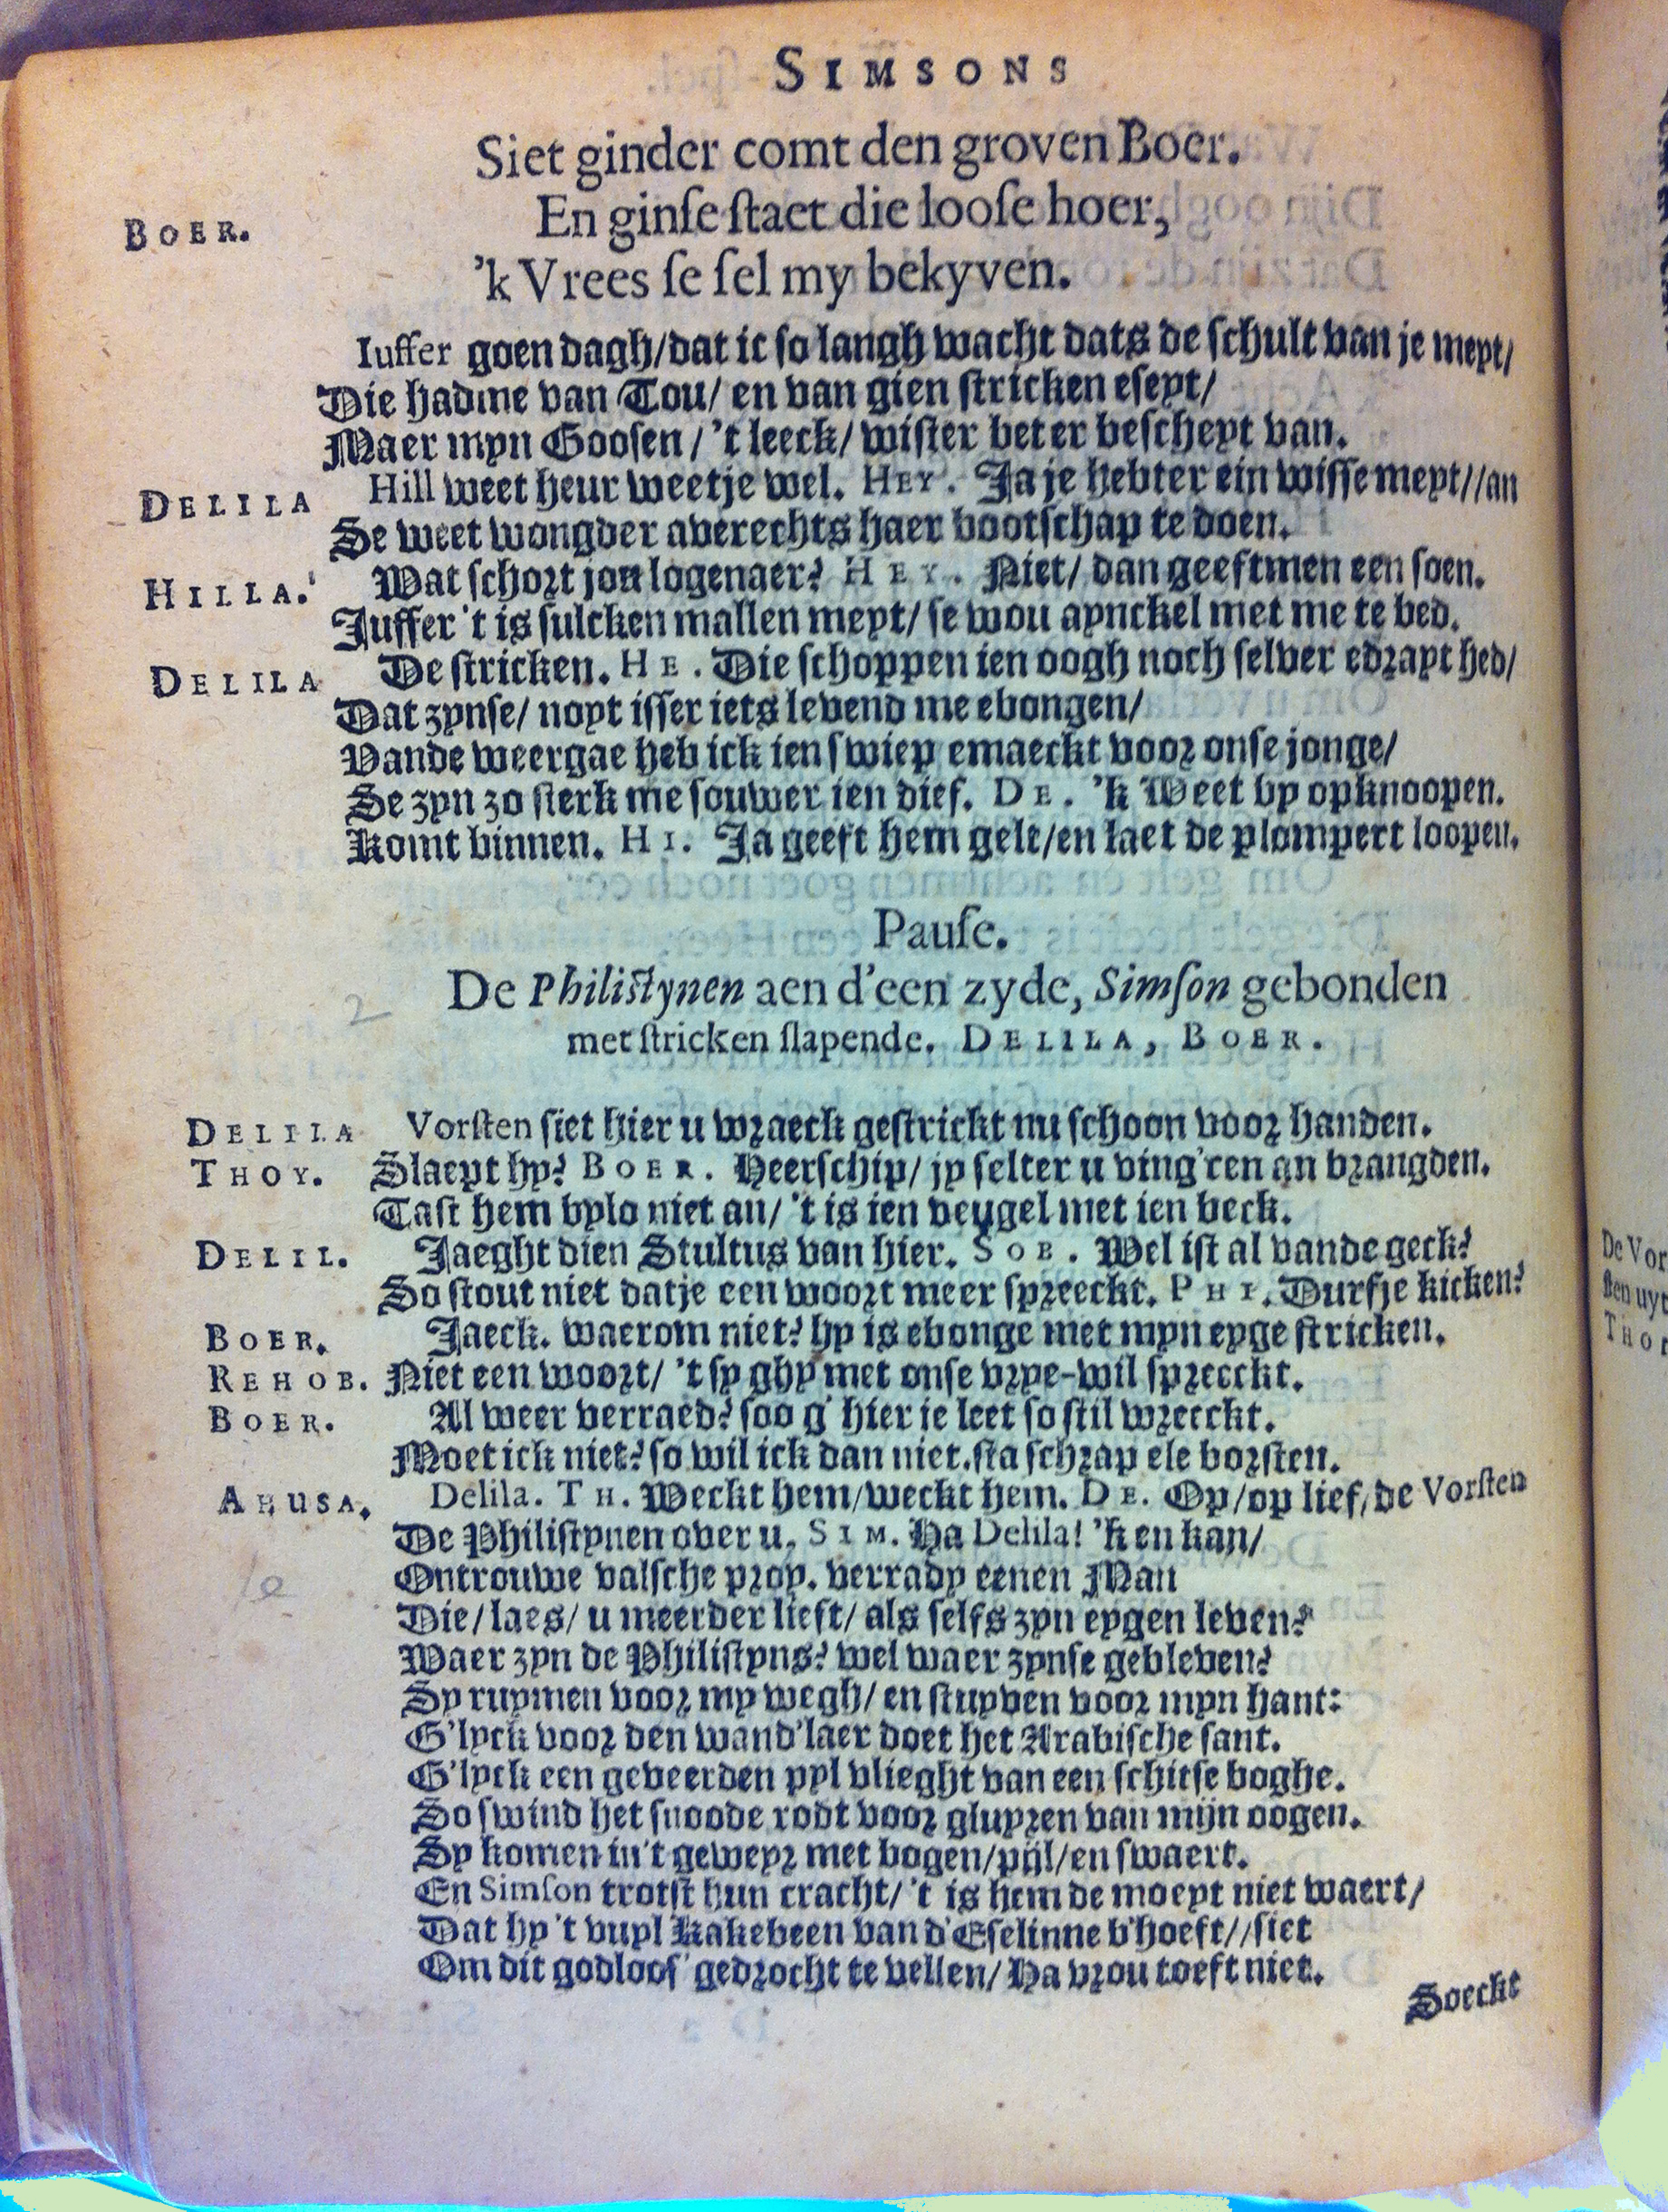 SIMSONS
Siet ginder comt den groven Boer.
En ginſe ſtaet die looſe hoer,
'k Vrees ſe ſel my bekyven.
BOER. Iuffer goen dagh/dat ic so langh wacht dats de schult van je meyt/
Die hadme van Tou/ en van gien stricken eseyt/
Maer myn Goosen/ 't leeck/ wister beter bescheyt van.
DELILA Hill weet heur weetje wel. HEY. Ja je hebter ein wisse meyt//an
Se weet wongder averechts haer bootschap te doen.
HILLA. Wat schort jou logenaer? HEY. Niet/ dan geeftmen een soen.
Juffer 't is sulcken mallen meyt/ se wou aynckel met me te bed.
DELILA De stricken. HE. Die schoppen ien oogh noch selver edrayt hed/
Dat zynse/ noyt isser iets levend me ebongen/
Vande weergae heb ick ien swiep emaeckt voor onse jonge/
Se zyn zo sterk me souwer ien dief. DE. 'k Weet by opknoopen.
Komt binnen. HI. Ja geeft hem gelt/en laet de plompert loopen.
Pauſe.
De Philiſtynen aen d'een zyde, Simſon gebonden
met ſtricken ſlapende. DELILA, BOER.
2
DELILA Vorſten siet hier u wraeck gestrickt nu schoon voor handen.
THOY. Slaept hy? BOER. Heerschip/ jy selter u ving'ren an brangden.
Tast hem bylo niet an/ 't is ien veugel met ien beck.
DELIL. Jaeght dien Stultus van hier. SOB. Wel ist al vande geck?
So stout niet datje een woort meer spreeckt. PHI. Durfje kicken?
BOER. Jaeck. waerom niet? hy is ebonge met myn eyge stricken.
REHOB. Niet een woort/ 't sy ghy met onse vrye-wil spreeckt.
BOER. Al weer verraed? soo g' hier je leet so stil wreeckt.
Moet ick niet? so wil ick dan niet. sta schrap ele borsten.
AHUSA. Delila. TH. Weckt hem/weckt hem. DE. Op/op lief/de Vorſten
De Philistynen over u. SIM. Ha Delila! 'k en kan/
Ontrouwe valsche prop. verrady eenen Man
Die/laes/ u meerder lieft/ als selfs zyn eygen leven?
Waer zyn de Philistyns? wel waer zynse gebleven?
Sy ruymen voor my wegh/ en stuyven voor myn hant:
G'lyck voor den wand'laer doet het Arabische sant.
G'lyck een geveerden pyl vlieght van een schitse boghe.
So swind het snoode rodt voor gluyren van mijn oogen.
Sy komen in't geweyr met bogen/pijl/en swaert.
En Simſon trotst hun cracht/ 't is hem de moeyt niet waert/
Dat hy 't vuyl Kakebeen van d'Eselinne b'hoeft//siet
Om dit godloos' gedrocht te vellen/ Ha vrou toeft niet.
Soeckt
De Vor
ſten uyt
THO